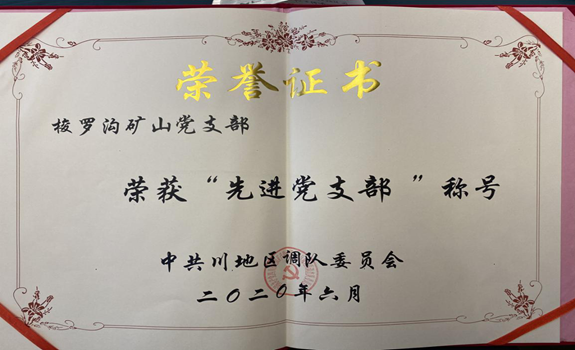 荣誉证书
梭罗沟矿山党支部
荣获“先进党支部”称号
中共川地区调队委员会
二〇二〇年六月